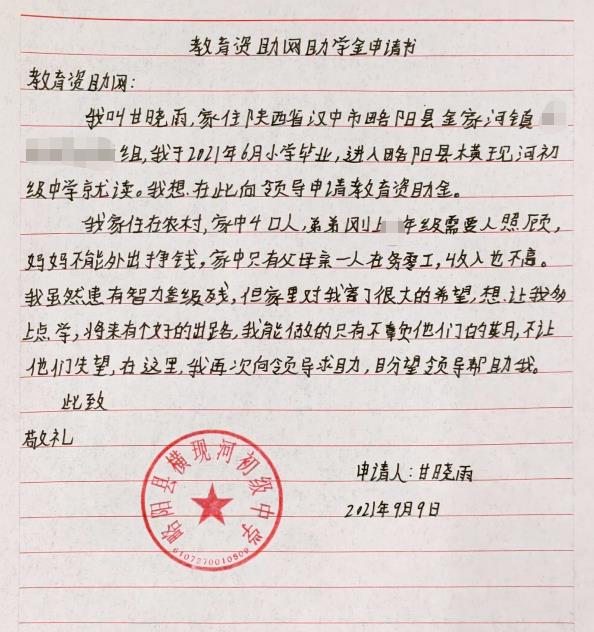 教育资助网助学金申请书
教育资助网:
我叫甘晓雨,家住陕西省汉中市略阳县金家河镇
组,我于2021年6月小学毕业,进入略阳县横现河初
级中学就读。我想在此向领导申请教育资助金。
我家住在农村,家中4口人,弟弟刚上年级需要人照顾,
妈妈不能外出挣钱,家中只有父母亲一人在务零工,收入也不高。
我虽然患有智力叁级残,但家里对我寄了很大的希望,想让我多
上点学,将来有个好的出路,我能做的只有不辜负他们的期,不让
他们失望,在这里,我再次向领导求助,盼望领导帮助我。
此致
敬礼
申请人:甘晓雨
2021年9月9日
略阳县横现河初级中学
6107270010509